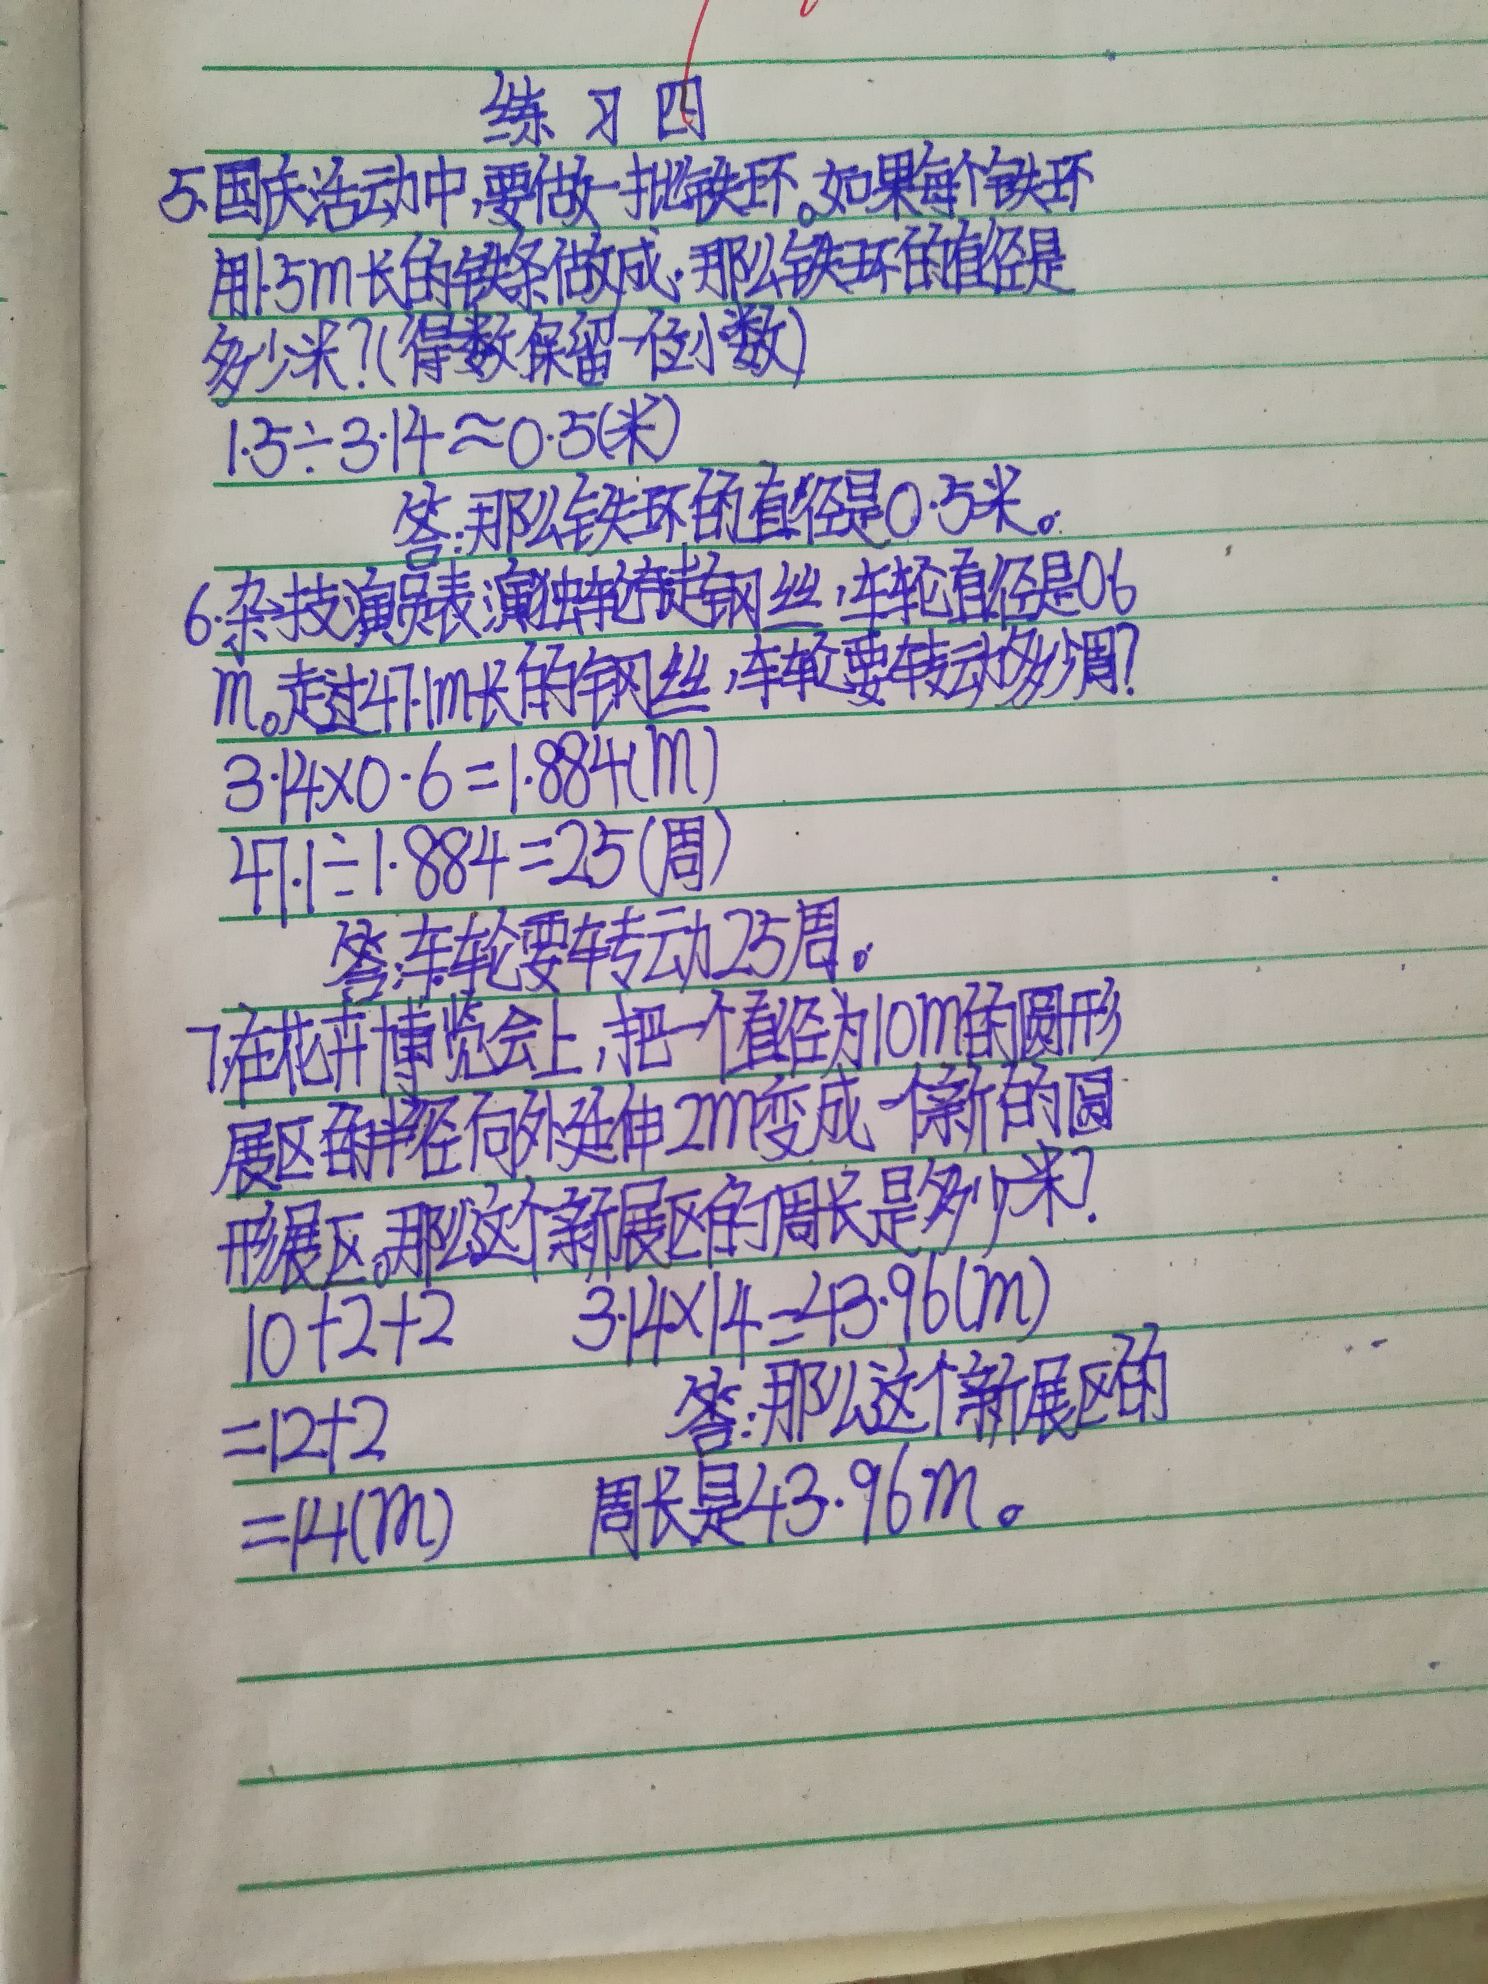 练习四
5.国庆活动中,要做一批铁环。如果每个铁环
用1.5m长的铁条做成,那么铁环的直径是
多少米?(得数保留一位小数)
1.5÷3.14≈0.5(米)
答:那么铁环的直径是0.5米。
6.杂技演员表演独轮车走钢丝,车轮直径是0.6
m。走过47.1m长的钢丝,车轮要转动多少周?
3.14×0.6=1.884(m)
47.1÷1.884=25(周)
答:车轮要转动25周。
7.在花卉博览会上,把一个直径为10m的圆形
展区的半径向外延伸2m变成一个新的圆
形展区。那么这个新展区的周长是多少米?
10+2+2 3.14×14=43.96(m)
=12+2 答:那么这个新展区的
=14(m) 周长是43.96m。